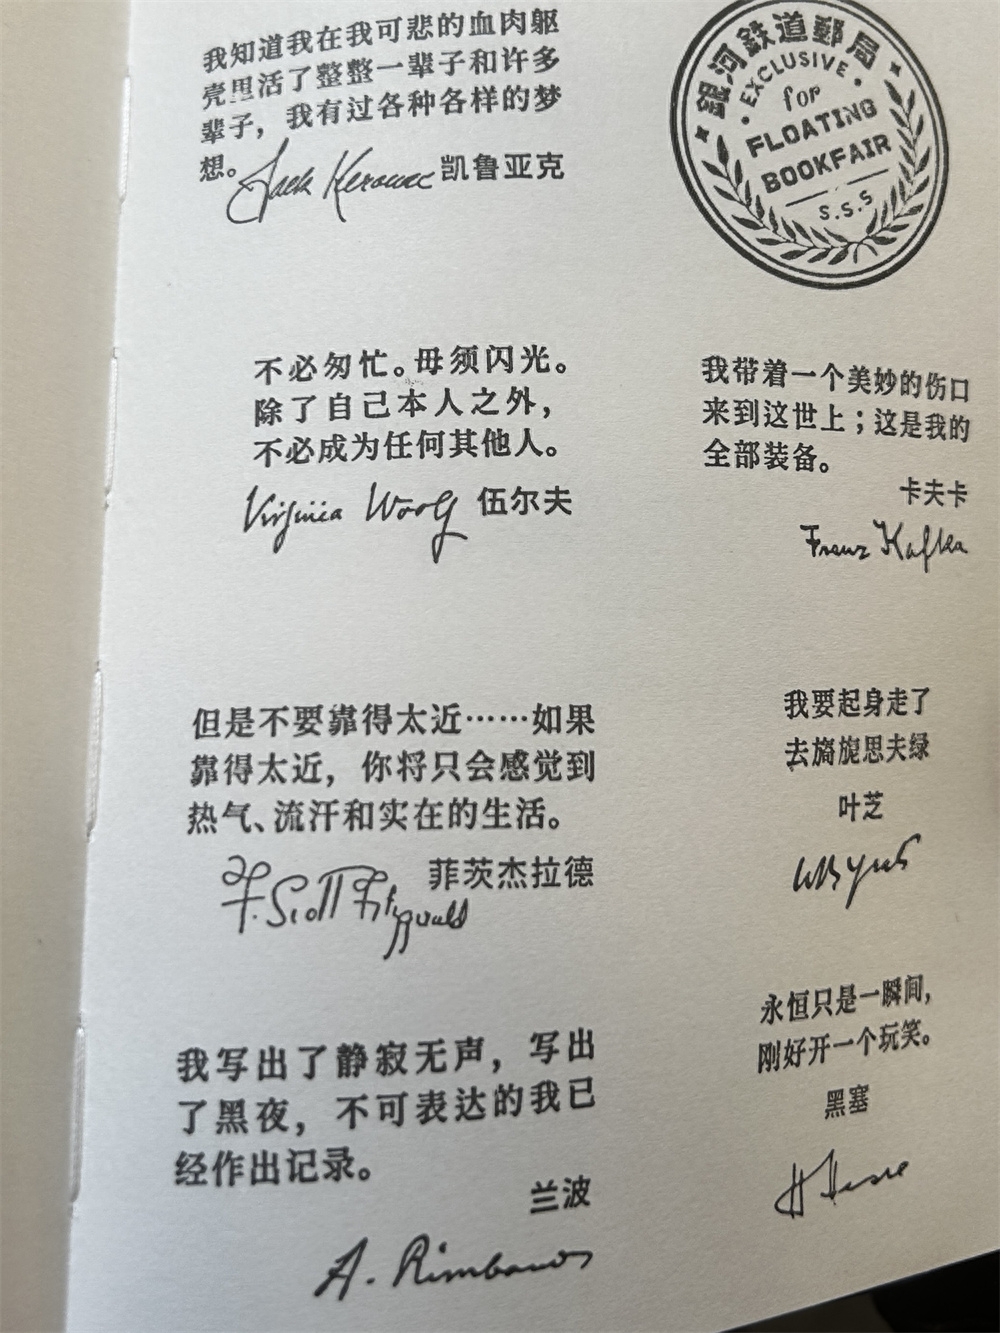 我知道我在我可悲的血肉躯
壳里活了整整一辈子和许多
辈子，我有过各种各样的梦
想。
Jack Kerouac 凯鲁亚克
銀河鉄道郵局
EXCLUSIVE
for
FLOATING
BOOKFAIR
S.S.S
不必匆忙。毋须闪光。
除了自己本人之外，
不必成为任何其他人。
Virginia Woolf 伍尔夫
我带着一个美妙的伤口
来到这世上；这是我的
全部装备。
卡夫卡
Franz Kafka
但是不要靠得太近……如果
靠得太近，你将只会感觉到
热气、流汗和实在的生活。
菲茨杰拉德
F. Scott Fitzgerald
我要起身走了
去旖旎思夫绿
叶芝
WBYeats
我写出了静寂无声，写出
了黑夜，不可表达的我已
经作出记录。
兰波
A. Rimbaud
永恒只是一瞬间，
刚好开一个玩笑。
黑塞
H Hesse